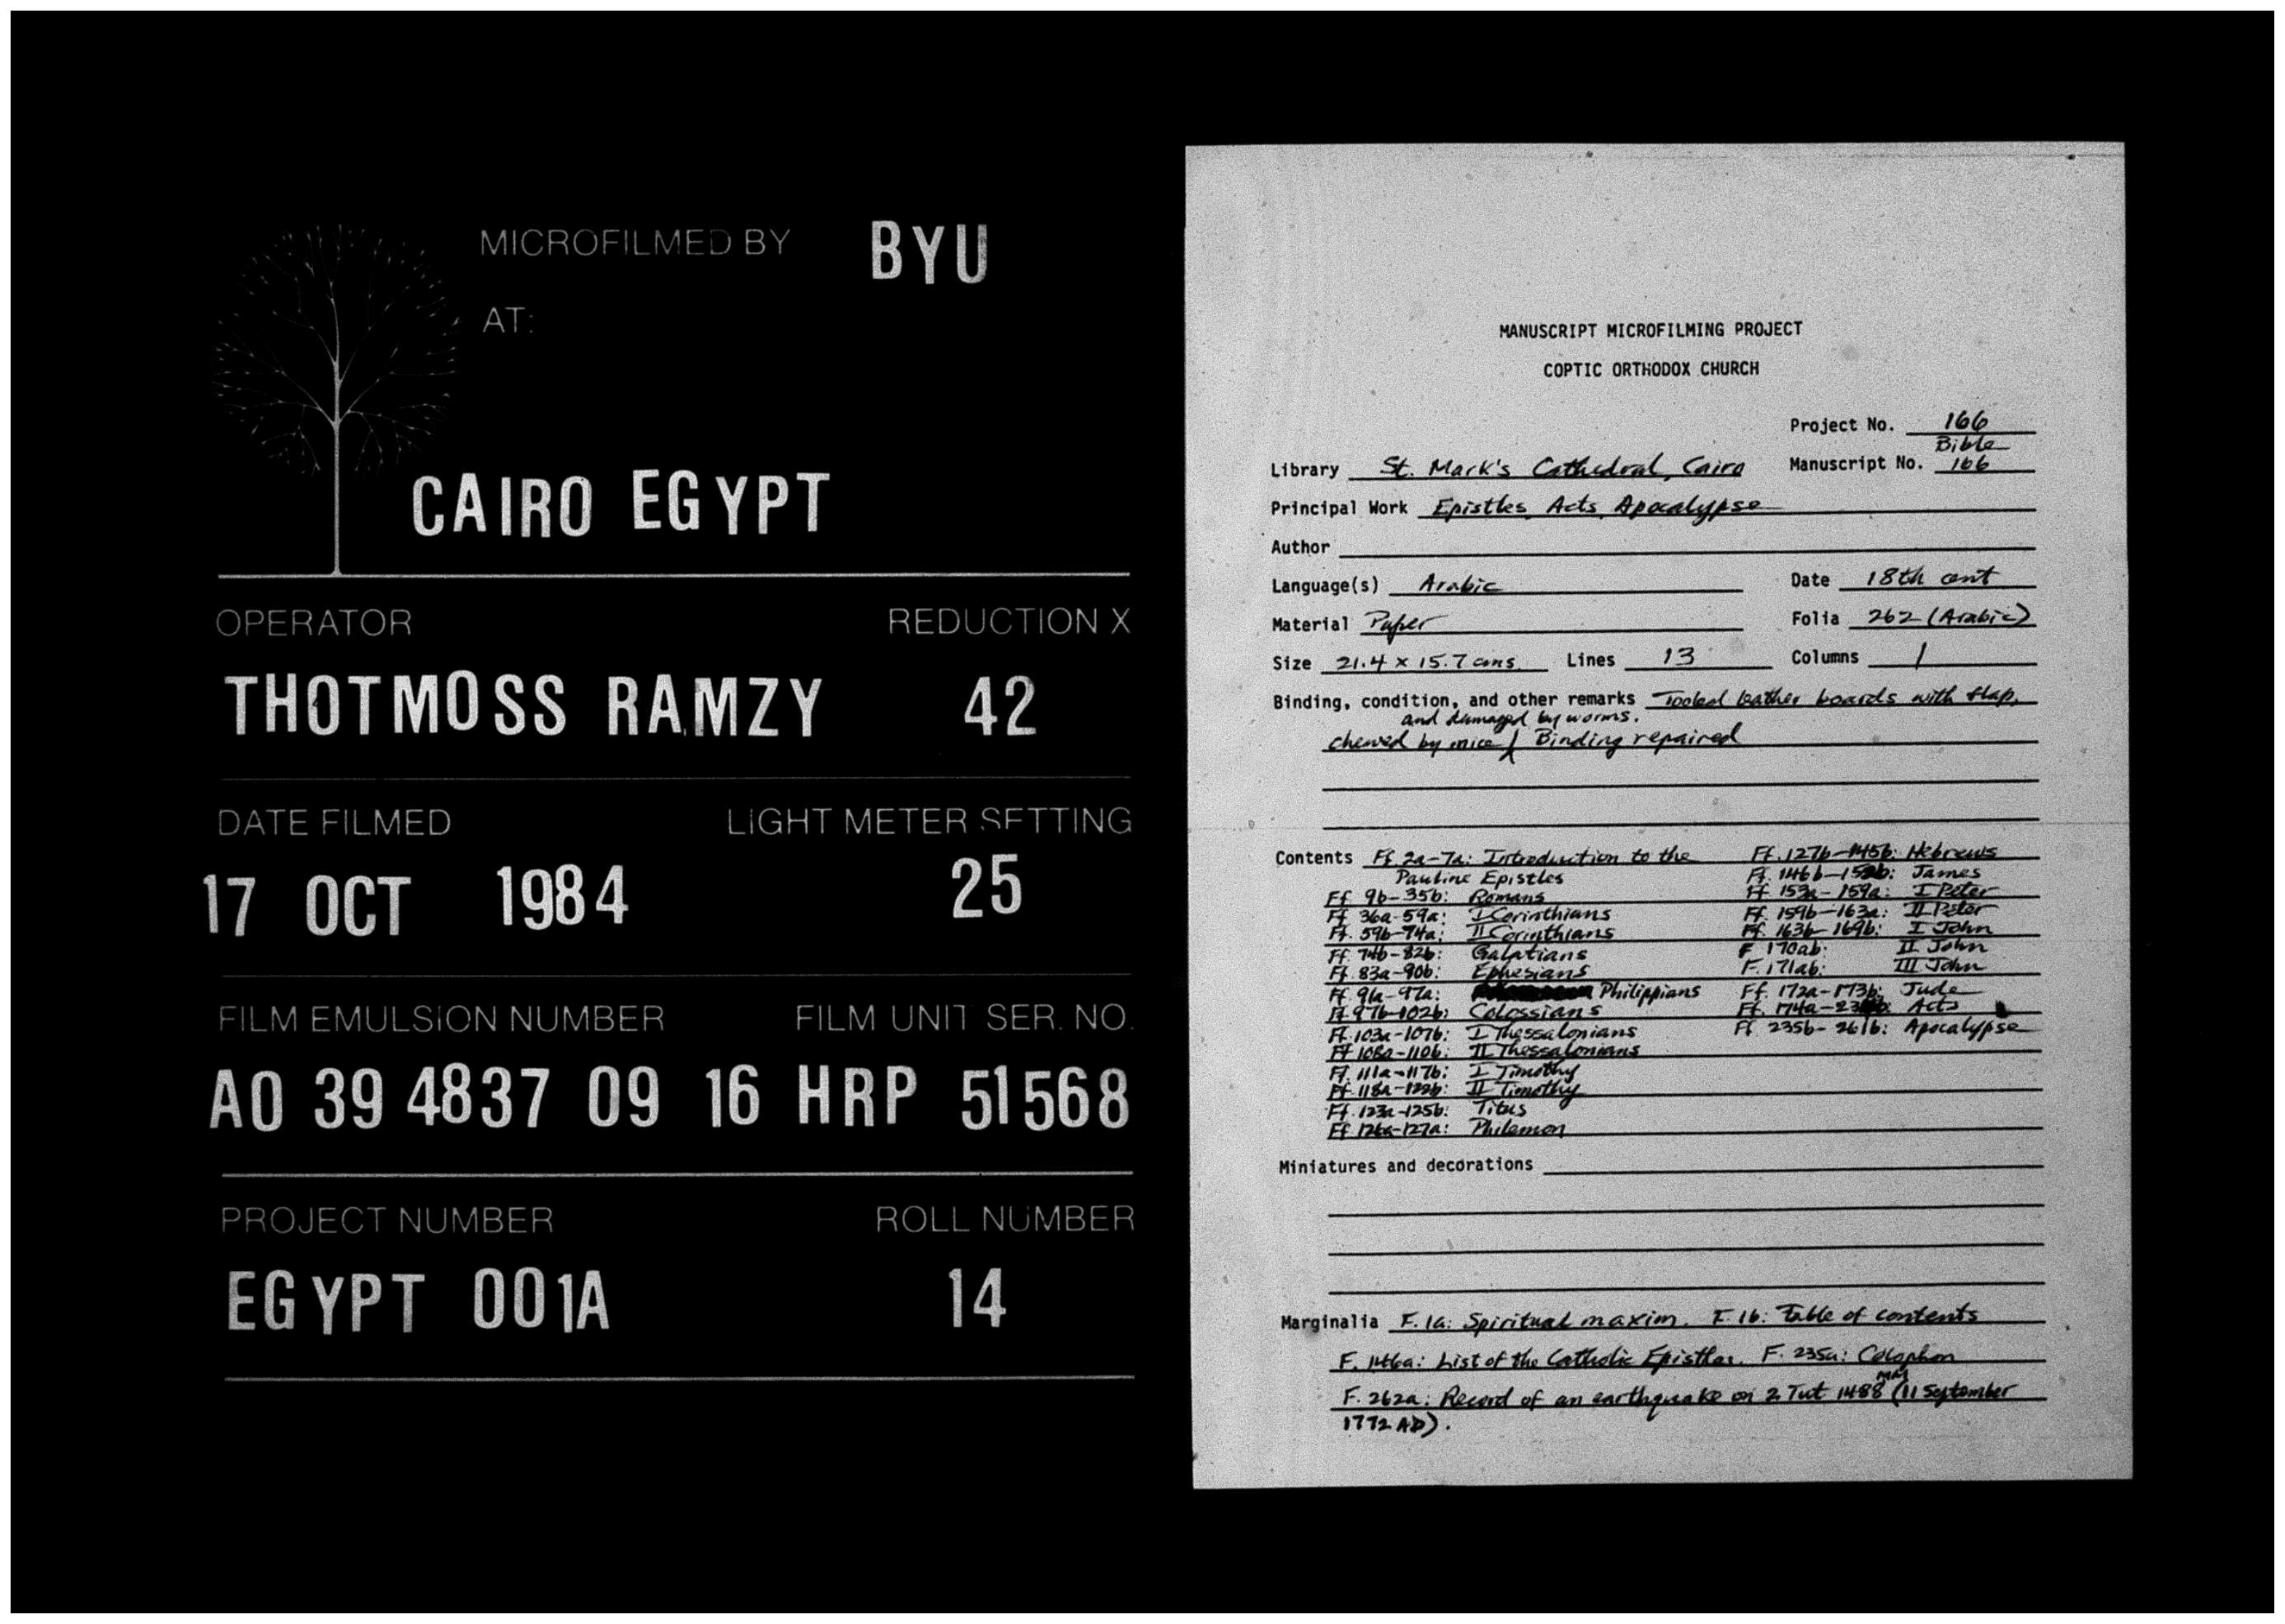 MICROFILMED BY BYU
AT:
CAIRO EGYPT
OPERATOR REDUCTION X
THOTMOSS RAMZY 42
DATE FILMED LIGHT METER SETTING
17 OCT 1984 25
FILM EMULSION NUMBER FILM UNIT SER. NO.
A0 39 4837 09 16 HRP 51568
PROJECT NUMBER ROLL NUMBER
EGYPT 001A 14
MANUSCRIPT MICROFILMING PROJECT
COPTIC ORTHODOX CHURCH
Project No. 166
Bible
Library St. Mark's Cathedral, Cairo Manuscript No. 166
Principal Work Epistles, Acts, Apocalypse
Author
Language(s) Arabic Date 18th cent
Material Paper Folia 262 (Arabic)
Size 21.4 x 15.7 cms. Lines 13 Columns 1
Binding, condition, and other remarks Tooled leather boards with flap,
and damaged by worms.
chewed by mice Binding repaired
Contents Ff. 2a-7a: Introduction to the
Pauline Epistles
Ff 9b-35b: Romans
Ff 36a-59a: I Corinthians
Ff. 59b-74a: II Corinthians
Ff. 74b-82b: Galatians
Ff. 83a-90b: Ephesians
Ff. 91a-97a: Philippians
Ff. 97b-102b: Colossians
Ff. 103a-107b: I Thessalonians
Ff 108a-110b: II Thessalonians
Ff. 111a-117b: I Timothy
Ff. 118a-122b: II Timothy
Ff. 123a-125b: Titus
Ff 126a-127a: Philemon
Ff. 127b-145b: Hebrews
Ff. 146b-152b: James
Ff 153a-159a: I Peter
Ff. 159b-163a: II Peter
Ff. 163b-169b: I John
F 170ab: II John
F. 171ab: III John
Ff. 172a-173b: Jude
Ff. 174a- Acts
Ff. 235b-261b: Apocalypse
Miniatures and decorations
Marginalia F. 1a: Spiritual maxim. F. 1b: Table of contents
F. 146a: List of the Catholic Epistles. F. 235a: Colophon
F. 262a: Record of an earthquake on 2 Tut 1488 MM (11 September
1772 AD).